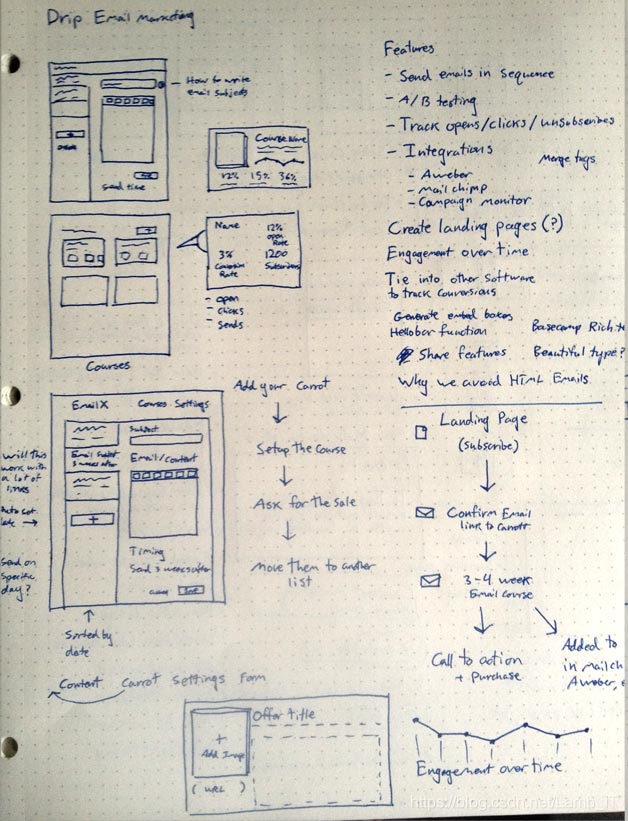 Drip Email Marketing
How to write
email subjects
Send time
Course Name
12% 15% 36%
Name
12%
open
Rate
3%
Conversion
Rate
1200
Subscribers
- open
- Clicks
- Sends
Courses
Features
- Send emails in Sequence
- A/B testing
- Track opens/clicks/unsubscribes
- Integrations
Merge tags
- Aweber
- Mail chimp
- Campaign monitor
Create landing pages (?)
Engagement over time
Tie into other Software
to track conversions
Generate embed
Hellobar function
Basecamp Rich
Share features
Beautiful type?
Why we avoid HTML Emails
EmailX
Courses Settings
Subject
Email/content
3 weeks after
+
Timing
Send 3 weeks after
Will this
work with
a lot of
links
Send on
Specific
day?
Sorted by
date
Add your Carrot
Setup the Course
Ask for the Sale
Move them to another
list
Landing Page
(Subscribe)
Confirm Email
link to Carrott
3-4 week
Email Course
Call to action
+ Purchase
Added to
in Mailch
Aweber,
Content
Carrot Settings Form
Offer title
+
Add Image
(URL)
Engagement over time
https://blog.csdn.net/Lamb_IT